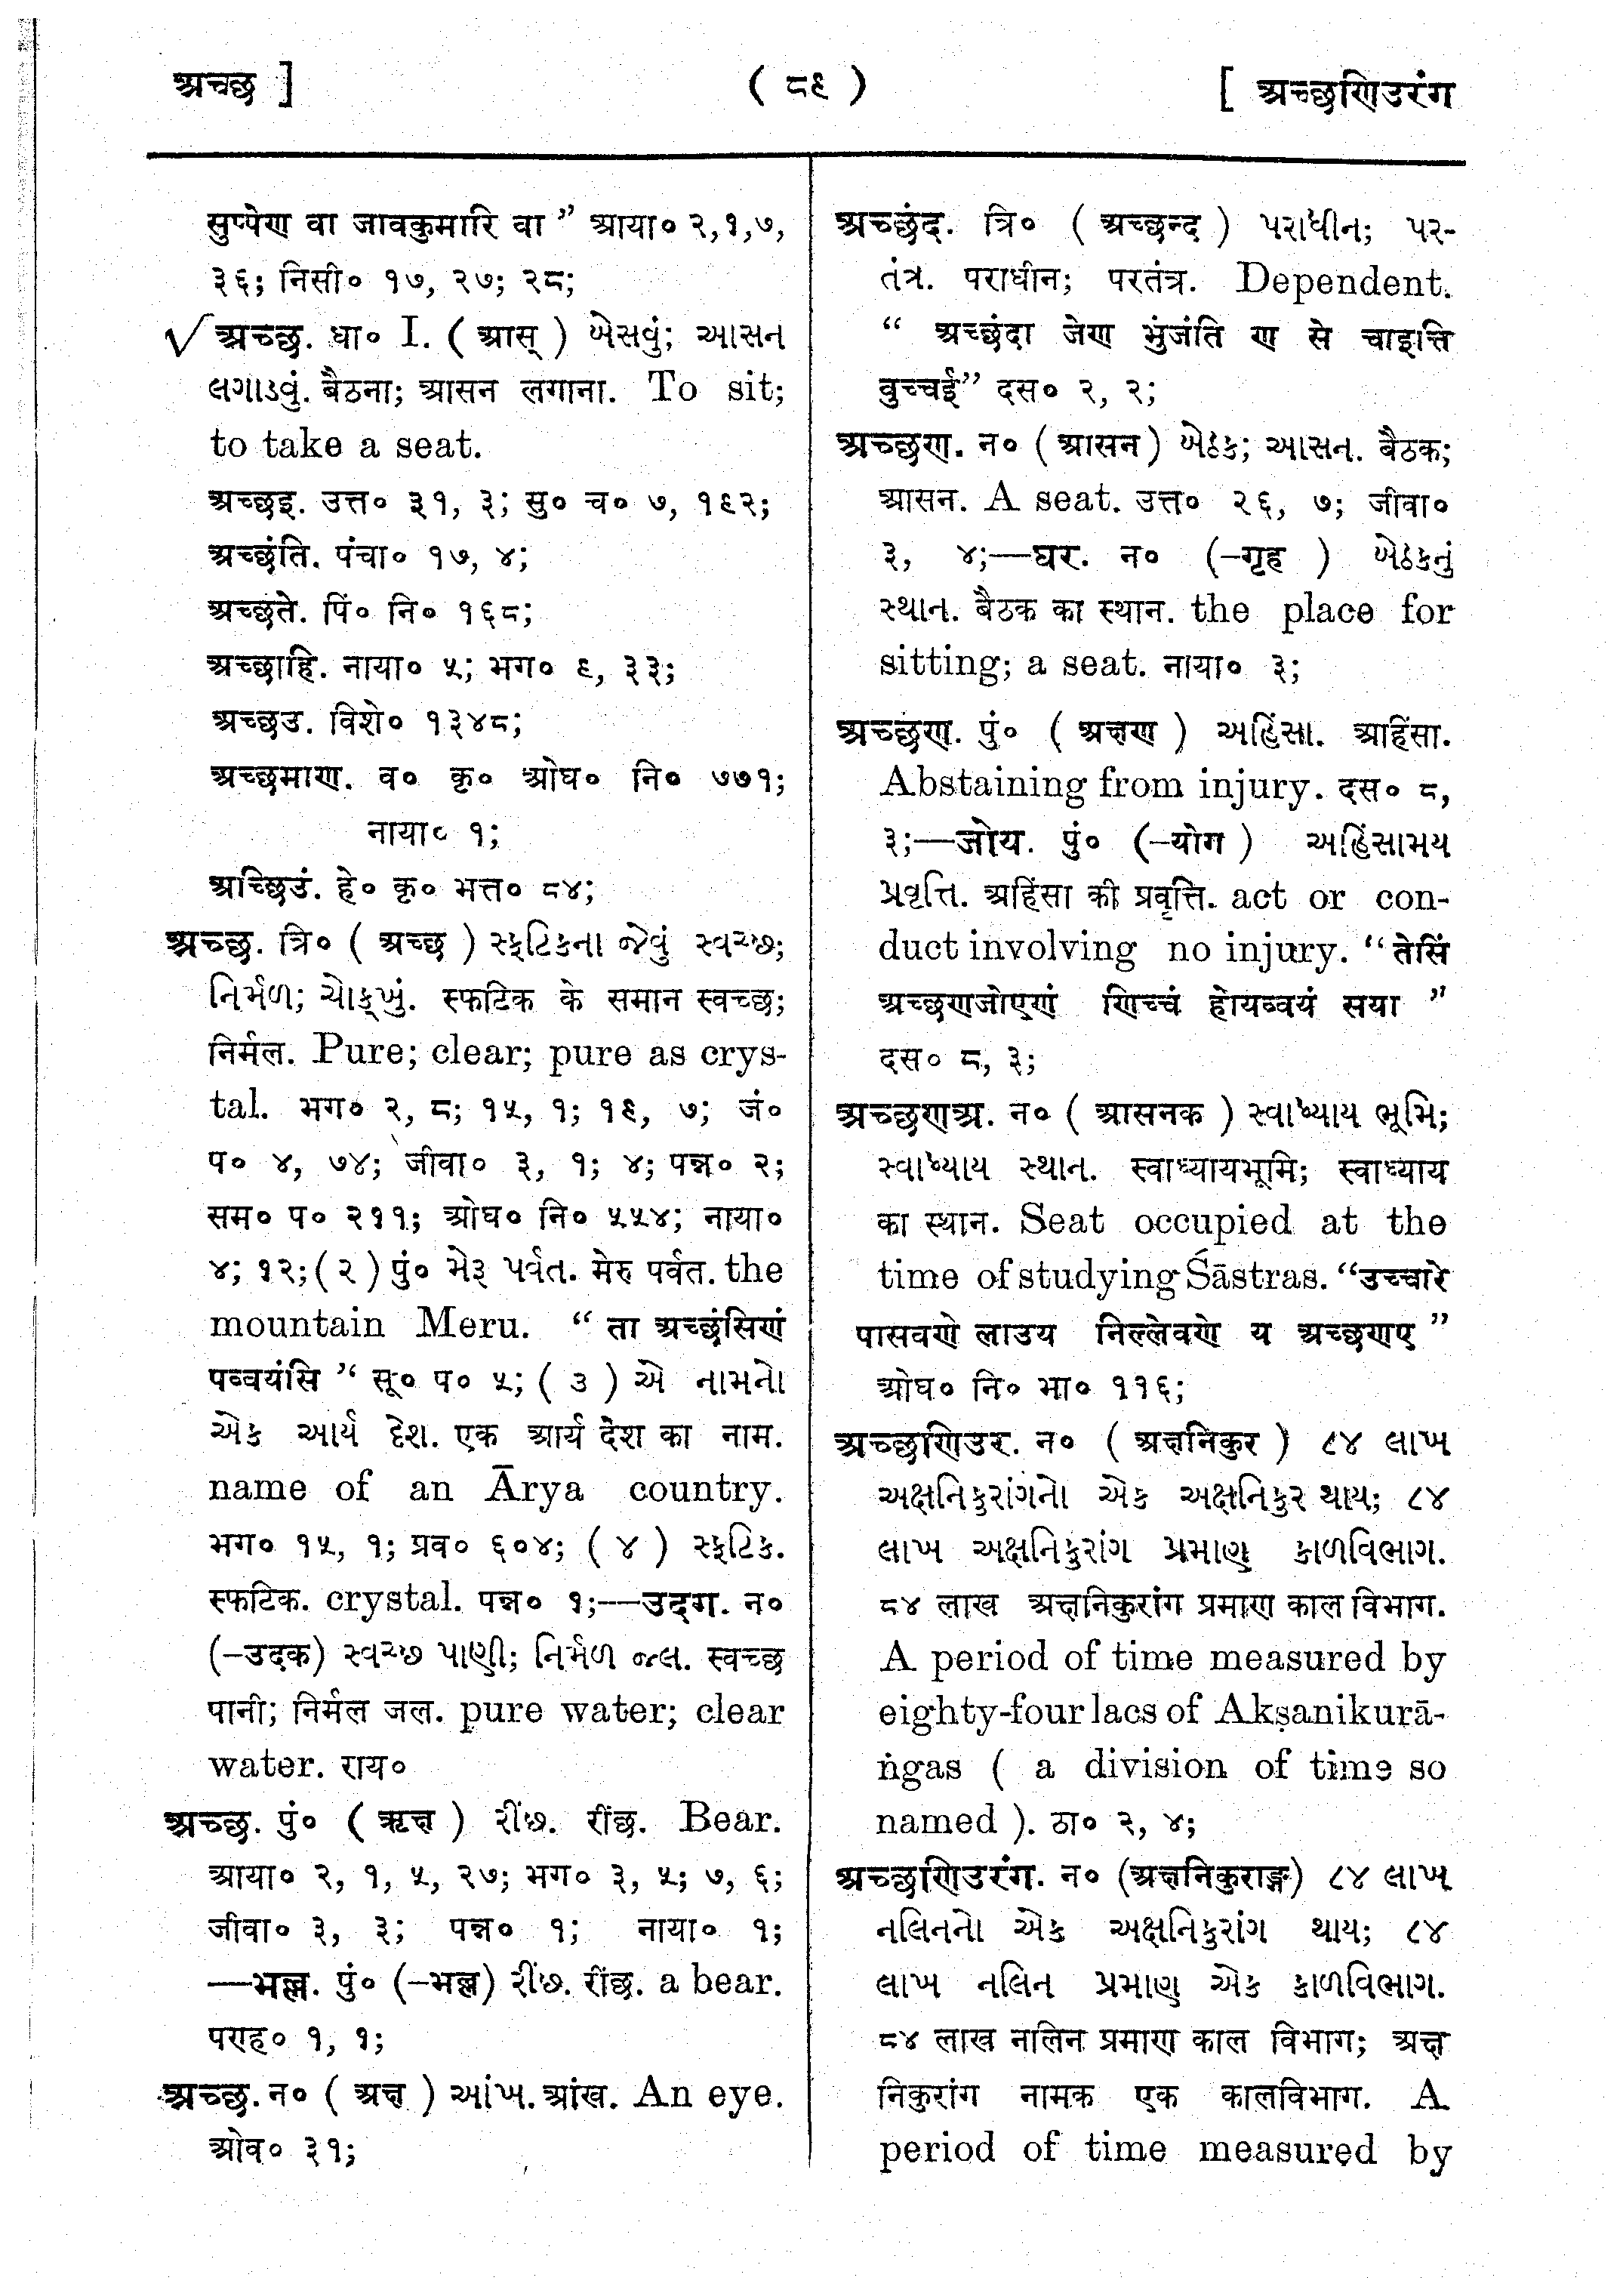 अच्छ ]
( ८९ )
[ अच्छणिउरंग
सुप्पेण वा जावकुमारि वा” आया० २,१,७,
३६; निसी० १७, २७; २८;
√ अच्छ. धा० I. ( आस् ) બેસવું; આસન
લગાડવું. बैठना; आसन लगाना. To sit;
to take a seat.
अच्छइ. उत्त० ३१, ३; सु० च० ७, १९२;
अच्छंति. पंचा० १७, ४;
अच्छते. पिं० नि० १६८;
अच्छाहि. नाया० ५; भग० ९, ३३;
अच्छउ. विशे० १३४८;
अच्छमाण. व० कृ० ओघ० नि० ७७१;
नाया० १;
अच्छिउं. हे० कृ० भत्त० ८४;
अच्छ. त्रि० ( अच्छ ) સ્ફટિકના જેવું સ્વચ્છ;
નિર્મળ; ચોક્ખું. स्फटिक के समान स्वच्छ;
निर्मल. Pure; clear; pure as crys-
tal. भग० २, ८; १५, १; १९, ७; जं०
प० ४, ७४; जीवा० ३, १; ४; पन्न० २;
सम० प० २११; ओघ० नि० ५५४; नाया०
४; १२; ( २ ) पुं० મેરૂ પર્વત. मेरु पर्वत. the
mountain Meru. “ ता अच्छंसिणं
पव्वयंसि ” सू० प० ५; ( ૩ ) એ નામનો
એક આર્ય દેશ. एक आर्य देश का नाम.
name of an Ārya country.
भग० १५, १; प्रव० ६०४; ( ४ ) સ્ફટિક.
स्फटिक. crystal. पन्न० १;—उदग. न०
(-उदक) સ્વચ્છ પાણી; નિર્મળ જલ. स्वच्छ
पानी; निर्मल जल. pure water; clear
water. राय०
अच्छ. पुं० ( ऋक्ष ) રીંછ. रींछ. Bear.
आया० २, १, ५, २७; भग० ३, ५; ७, ६;
जीवा० ३, ३; पन्न० १; नाया० १;
—भल्ल. पुं० (-भल्ल) રીંછ. रींछ. a bear.
पराह० १, १;
अच्छ. न० ( अक्ष ) આંખ. आंख. An eye.
ओव० ३१;
अच्छंद. त्रि० ( अच्छन्द ) પરાધીન; પર-
તંત્ર. पराधीन; परतंत्र. Dependent.
“ अच्छंदा जेण भुंजंति ण से चाइत्ति
वुच्चई” दस० २, २;
अच्छण. न० ( आसन ) બેઠક; આસન. बैठक;
आसन. A seat. उत्त० २६, ७; जीवा०
३, ४;—घर. न० (-गृह ) બેઠકનું
સ્થાન. बैठक का स्थान. the place for
sitting; a seat. नाया० ३;
अच्छण. पुं० ( अक्षण ) અહિંસા. आहिंसा.
Abstaining from injury. दस० ८,
३;—जोय. पुं० (-योग ) અહિંસામય
પ્રવૃત્તિ. अहिंसा की प्रवृत्ति. act or con-
duct involving no injury. “तेसिं
अच्छणजोएणं णिच्चं होयव्वयं सया ”
दस० ८, ३;
अच्छणअ. न० ( आसनक ) સ્વાધ્યાય ભૂમિ;
સ્વાધ્યાય સ્થાન. स्वाध्यायभूमि; स्वाध्याय
का स्थान. Seat occupied at the
time of studying Śāstras. “उच्चारे
पासवणे लाउय निल्लेवणे य अच्छणए ”
ओघ० नि० भा० ११६;
अच्छणिउर. न० ( अक्षनिकुर ) ૮૪ લાખ
અક્ષનિકુરાંગનો એક અક્ષનિકુર થાય; ૮૪
લાખ અક્ષનિકુરાંગ પ્રમાણ કાળવિભાગ.
८४ लाख अक्षनिकुरांग प्रमाण काल विभाग.
A period of time measured by
eighty-four lacs of Akṣanikurā-
ṅgas ( a division of time so
named ). ठा० २, ४;
अच्छणिउरंग. न० (अक्षनिकुराङ्ग) ૮૪ લાખ
નલિનનો એક અક્ષનિકુરાંગ થાય; ૮૪
લાખ નલિન પ્રમાણ એક કાળવિભાગ.
८४ लाख नालिन प्रमाण काल विभाग; अक्ष
निकुरांग नामक एक कालविभाग. A
period of time measured by